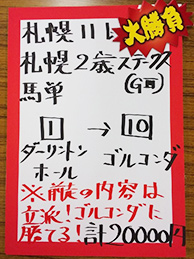 札幌11R
大勝負
札幌2歳ステークス
(GⅢ)
馬単
1 → 10
ダーリントンホール
ゴルコンダ
※前走の内容は
立派!ゴルコンダに
勝てる!計20000円